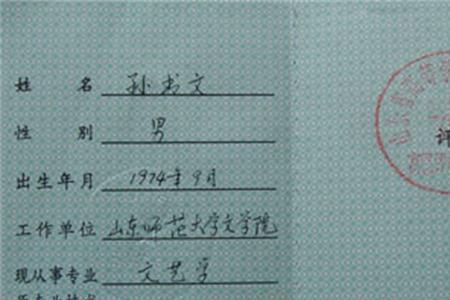 姓名 孙书文
性别 男
出生年月 1974年9月
工作单位 山东师范大学文学院
现从事专业 文艺学
评